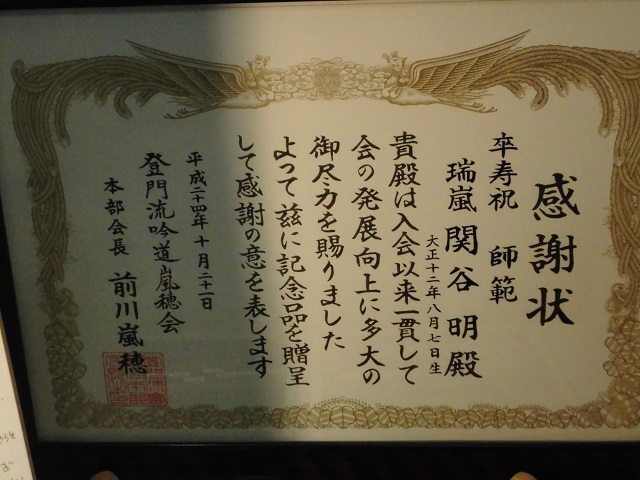 感謝状
卒寿祝 師範
瑞嵐 関谷 明殿
大正十二年八月七日生
貴殿は入会以来一貫して
会の発展向上に多大の
御尽力を賜りました
よって茲に記念品を贈呈
して感謝の意を表します
平成二十四年十月二十一日
登門流吟道嵐穂会
本部会長 前川嵐穂